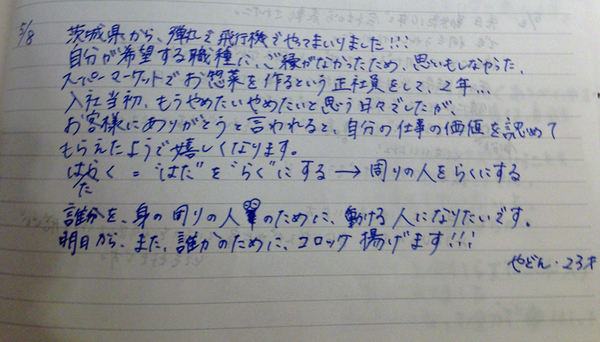 5/8
茨城県から、弾丸で飛行機でやってまいりました!!!
自分が希望する職種に、ご縁がなかったため、思いもしなかった、
スーパーマーケットでお惣菜を作るという正社員をして、2年...
入社当初、もうやめたいやめたいと思う日々でしたが、
お客様にありがとうと言われると、自分の仕事の価値を認めて
もらえたようで嬉しくなります。
はたらく = "はた"を"らく"にする → 周りの人をらくにする
自分を、身の周りの人のために、動ける人になりたいです。
明日から、また、誰かのために、コロッケ揚げます!!!
やどん・23才